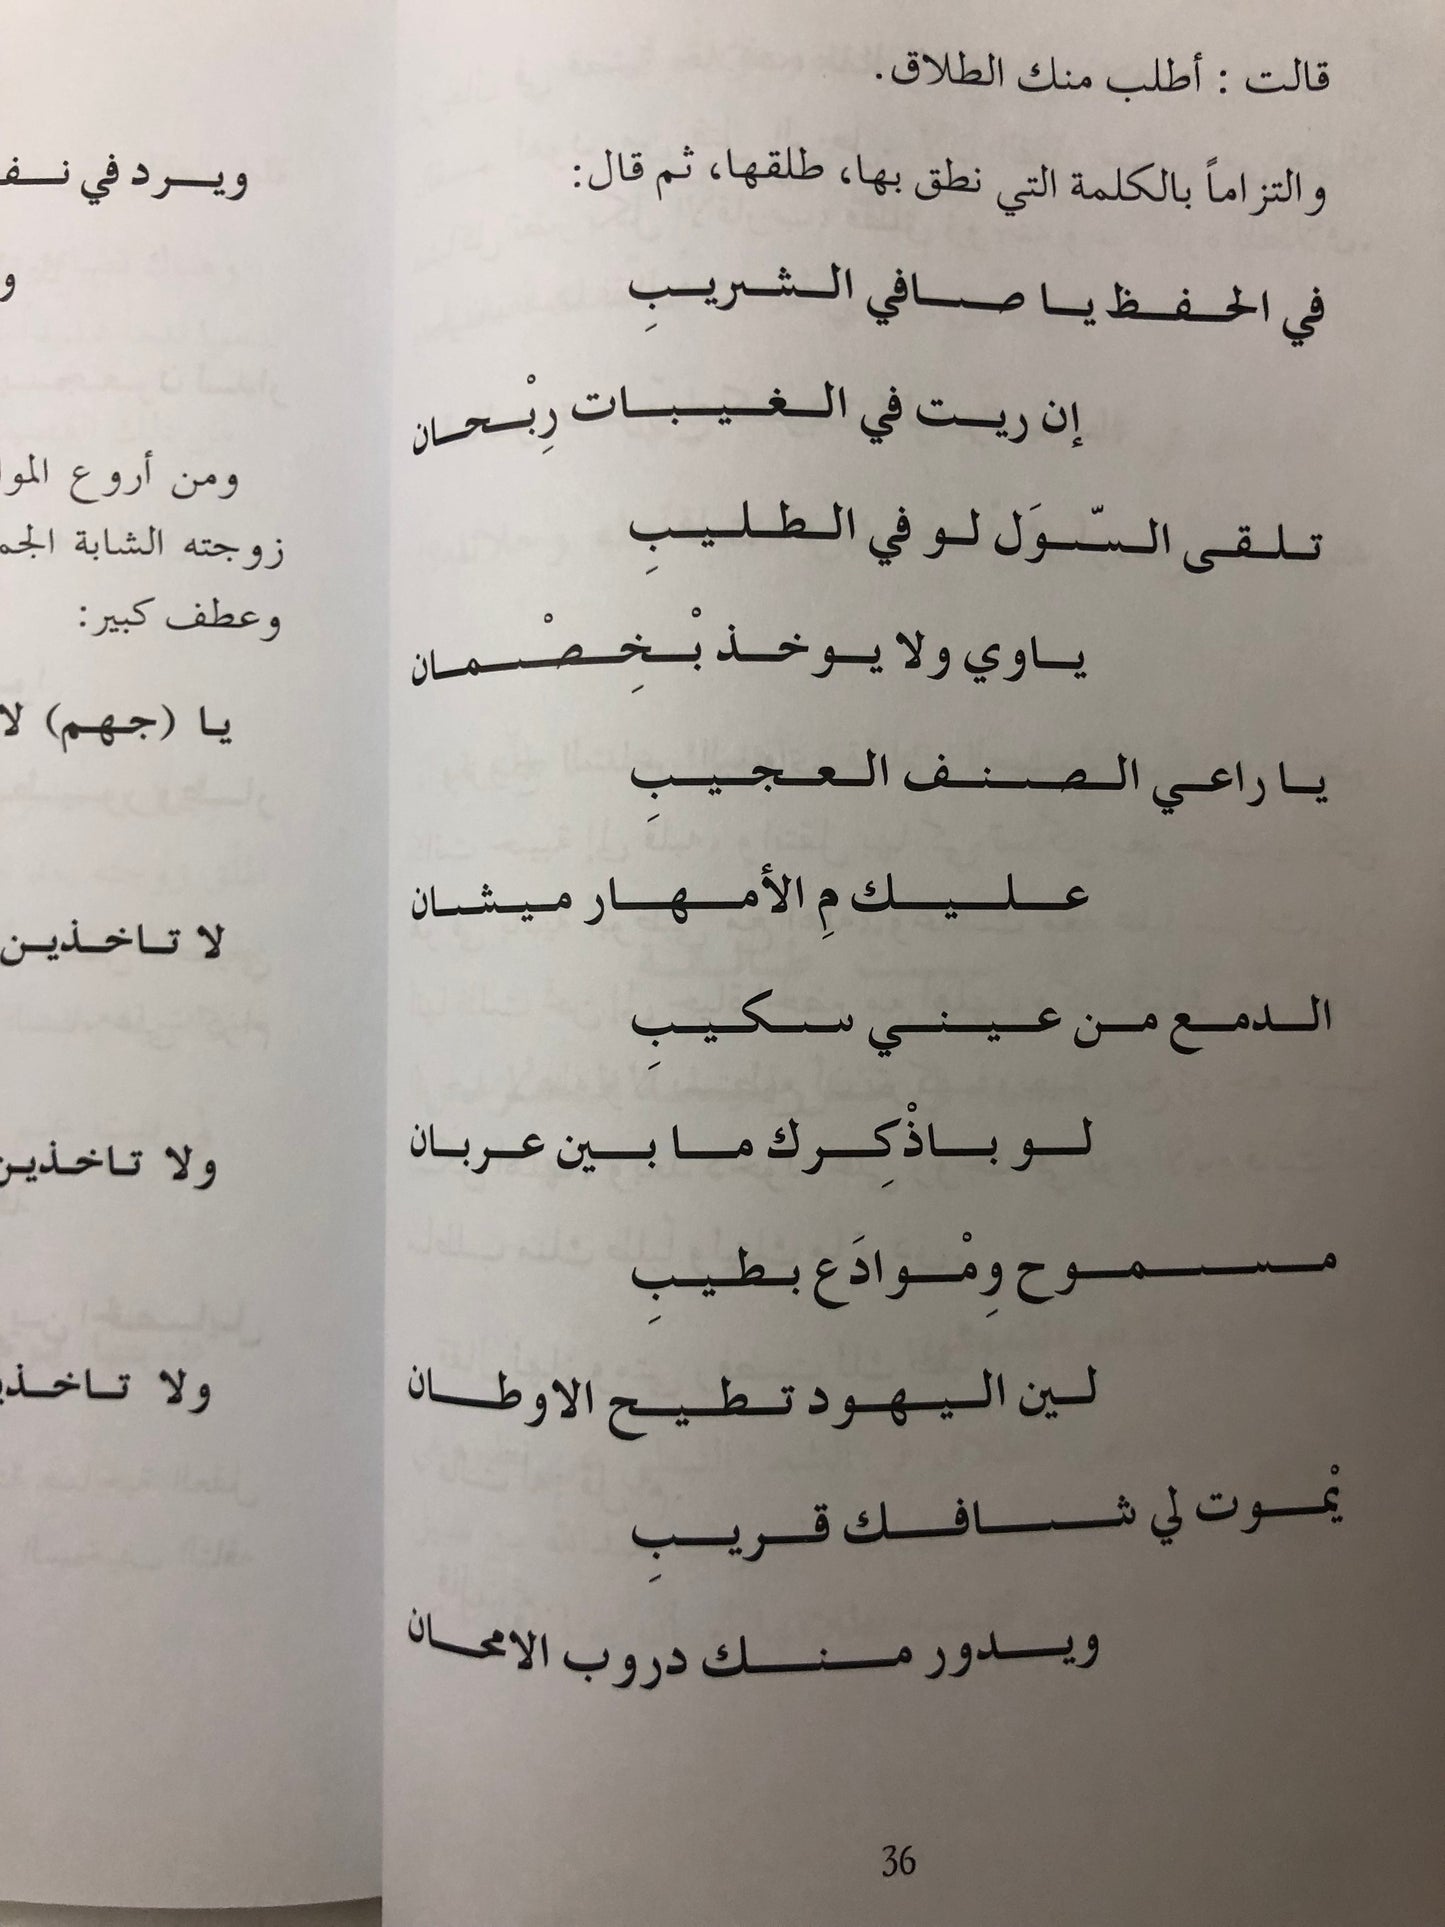 قالت : أطلب منك الطلاق.
والتزاماً بالكلمة التي نطق بها، طلقها، ثم قال:
في الحفظ يا صافي الشريبِ
إن ريت في الغيبات رِبْحان
تلقى السّوَل لو في الطليبِ
ياوي ولا يوخذ بْخِصْمان
يا راعي الصنف العجيبِ
عليك مِ الأمهار ميشان
الدمع من عيني سكيبِ
لو باذْكِرك ما بين عربان
مسموح وِمْوادَع بطيبِ
لين اليهود تطيح الاوطان
يْموت لي شافك قريبِ
ويدور منك دروب الامحان
36
ويرد في
و
ومن أروع
زوجته الشابة
وعطف كبير:
يا (جهم) لا
لا تاخذين
ولا تاخذين
ولا